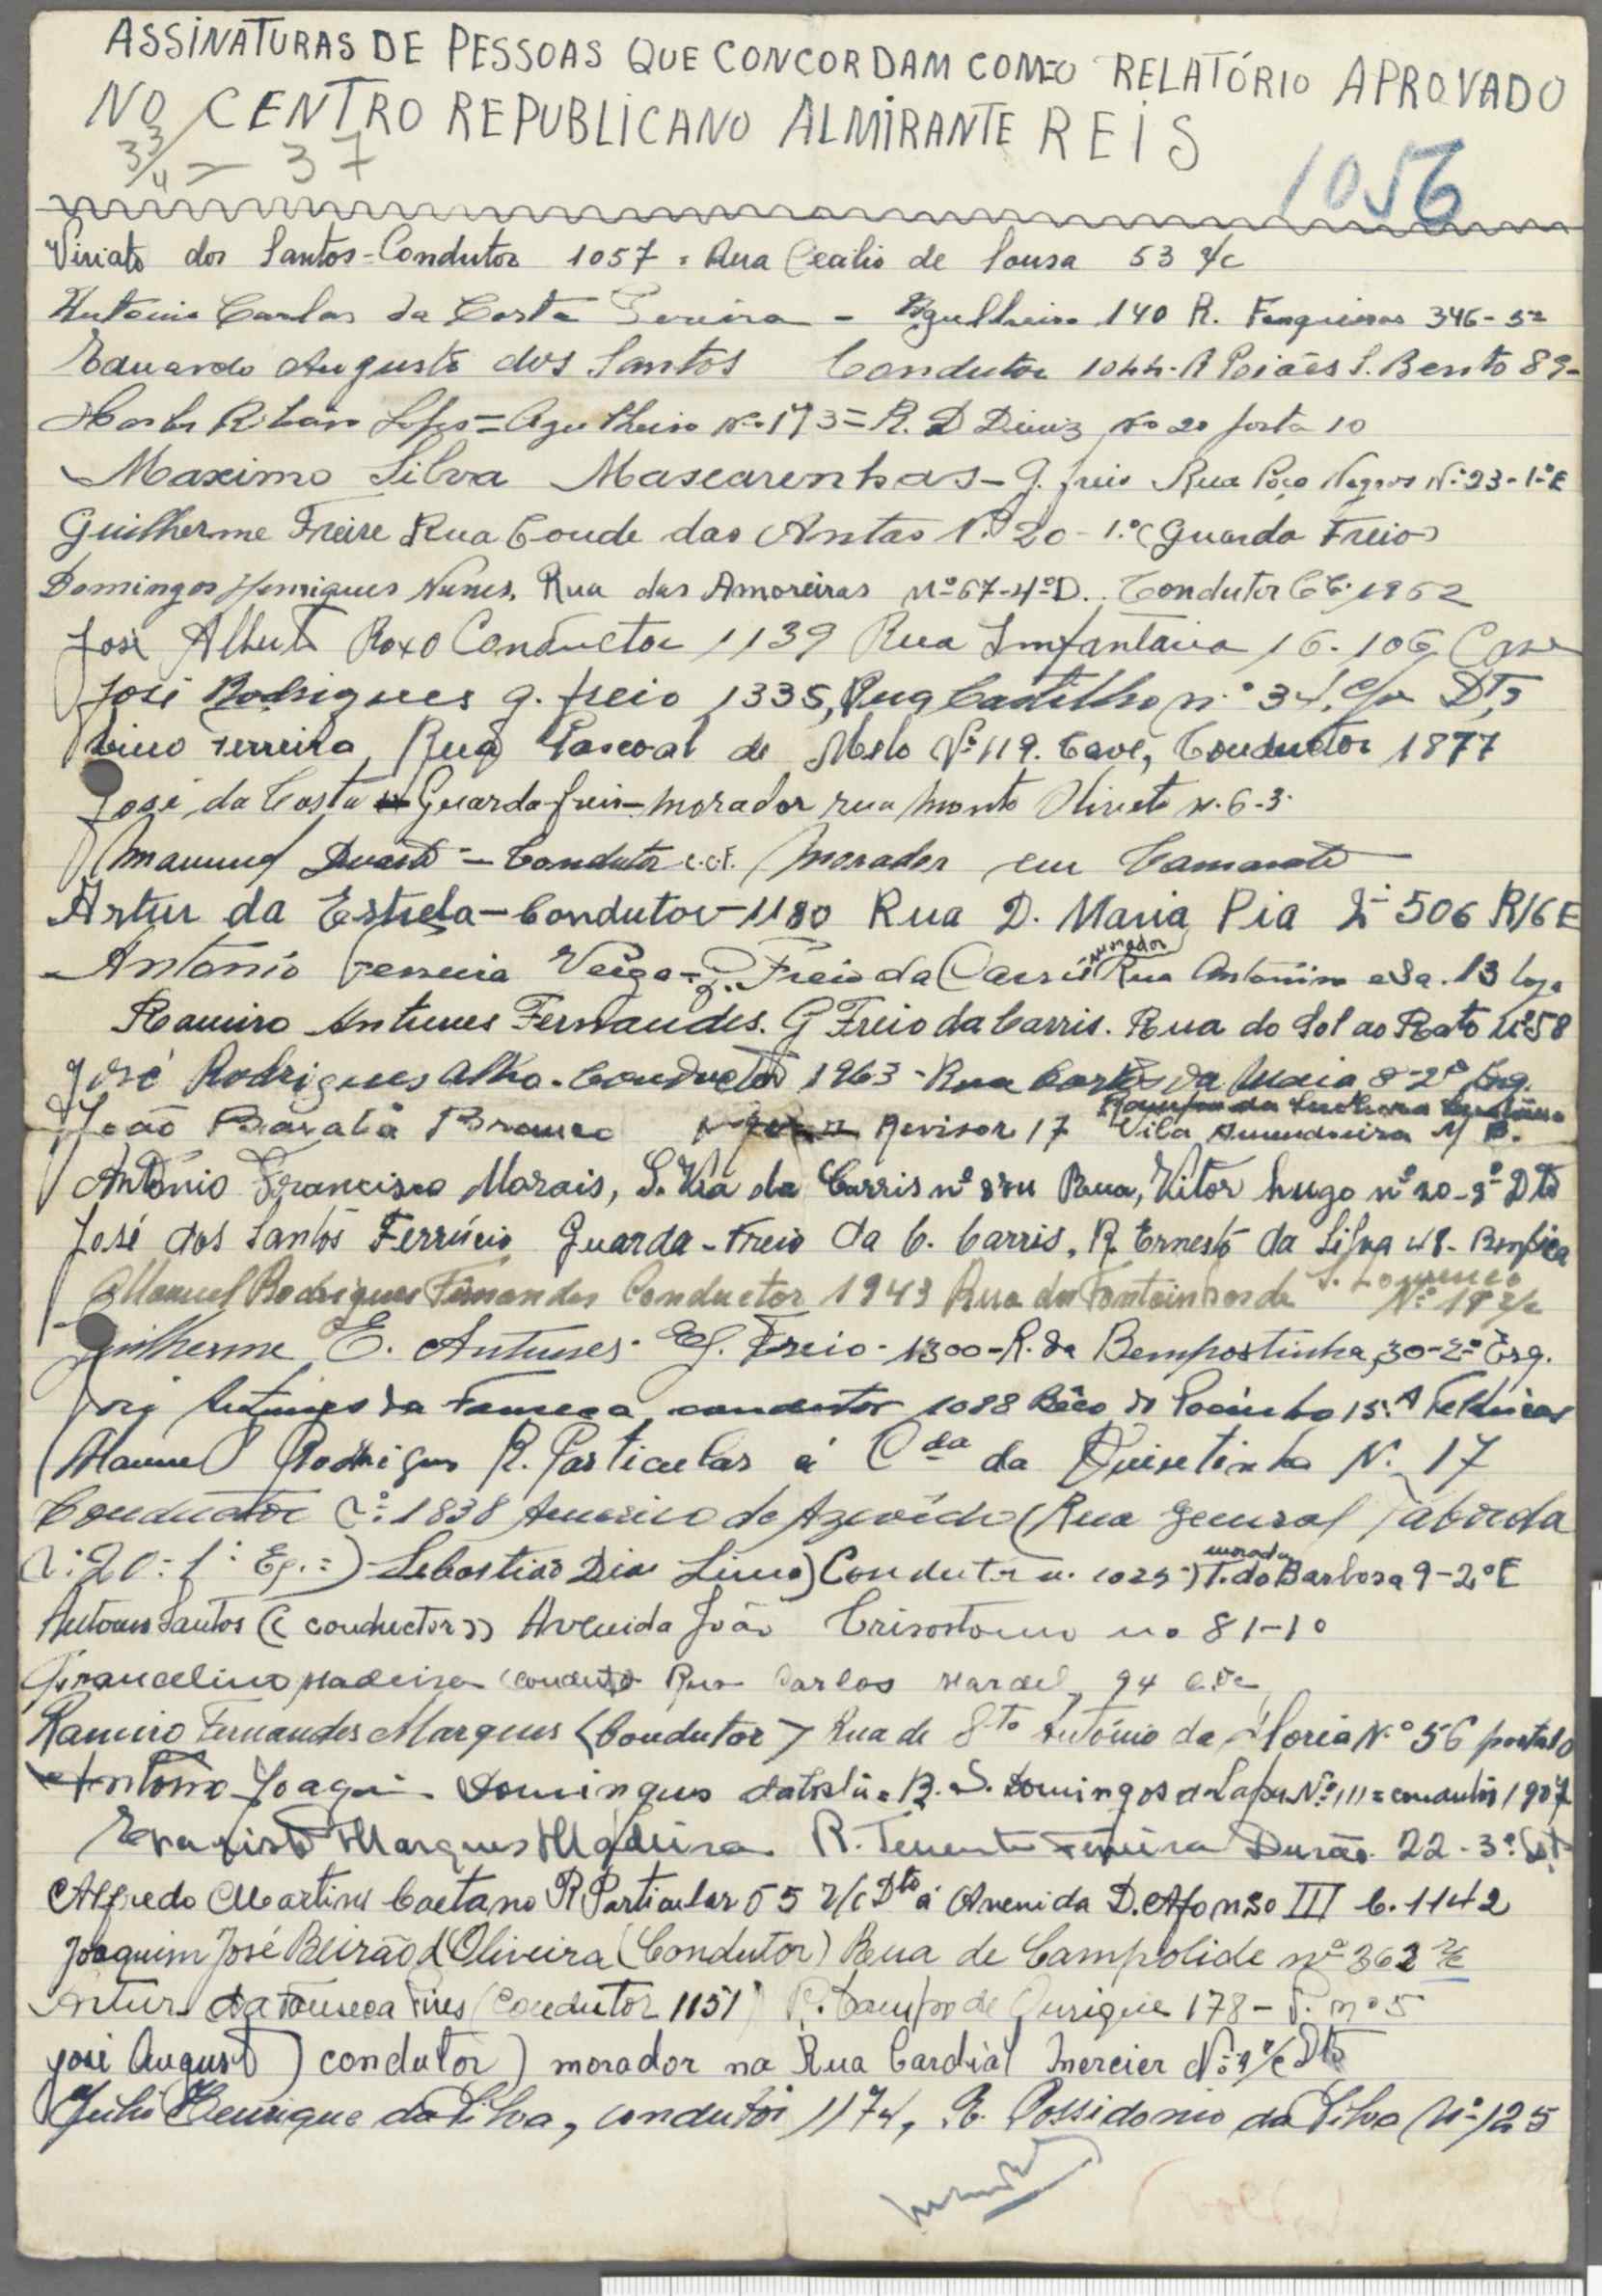 ASSINATURAS DE PESSOAS QUE CONCORDAM COM O RELATÓRIO APROVADO
NO CENTRO REPUBLICANO ALMIRANTE REIS
33/4 = 37
1056
Viriato dos Santos - Condutor 1057 = Rua Cecilio de Sousa 53 r/c
António Carlos da Costa Pereira - Agulheiro 140 R. Fanqueiros 346-5º
Eduardo Augusto dos Santos Condutor 1044 - R Poiães S. Bento 89-
Ribeiro Lopes = Agulheiro Nº 173 = R. D Diniz Nº 20 porta 10
Maximo Silva Mascarenhas - g. freio Rua Poço Negros Nº 23-1º E
Guilherme Freire Rua Conde das Antas Nº 20 - 1.º (Guarda Freio)
Domingos Henriques Nunes, Rua das Amoreiras Nº 67-4º D. Condutor CC. 1962
José Alberto Roxo Conductor 1139 Rua Infantaria 16. 106 Cave
José Rodrigues g. freio 1335, Rua Castilho n.º 34, c/v Dt.º
Lino Ferreira, Rua Pascoal de Melo Nº 119. Cave, Conductor 1877
José da Costa - Guarda-freio - Morador rua Monte Olivete n. 6-3.
Manuel Duarte - Condutor C.C.F. Morador em Camarate
Artur da Estrela - Condutor - 1180 Rua D. Maria Pia 506 R/6 E
António Ferreira Veiga - g. Freio da Carris morador Rua António e Sa. 13 loja
Ramiro Antunes Fernandes. G Freio da Carris. Rua do Sol ao Rato Nº 58
José Rodrigues Alho. Conductor 1963 - Rua Carlos da Maia 8-2º Esq.
João Barata Branco Revisor 17 Vila Amendoeira M B.
António Francisco Morais, S. Via da Carris nº 874 Rua, Vitor Hugo nº 20-3º Dtº
José dos Santos Ferrúcio Guarda-Freio da C. Carris, R. Ernesto da Silva 48 - Benfica
Manuel Rodrigues Fernandes Conductor 1943 Rua das Fontainhas de S. Lourenço Nº 19 r/c
Guilherme E. Antunes. G. Freio - 1300 - R. da Bempostinha, 30-2º Esq.
Antunes da Fonseca, condutor 1088 Bêco do Pocinho 15.A
Manuel Rodrigues R. Particular á Cda da Quintinha N. 17
Conductor Nº 1838 Americo de Azevêdo (Rua General Taborda
Nº 20-1º Eq.=) Sebastião Dias Lima) Condutor n. 1025 -) morada T. do Barbosa 9-2º E
Antonio Santos (( conductor )) Avenida João Crisostomo nº 81-1º
Francelino Madeira (condutor Rua Carlos Mardel, 94 c.ve
Ramiro Fernandes Marques (Condutor) Rua de Sto António da Gloria N.º 56 porta 10
António Joaquim Domingues R. S. Domingos á Lapa Nº 111 = condutor 1907
Evaristo Marques Madeira. R. Tenente Ferreira Durão. 22 - 3º Dt.
Alfredo Martins Caetano R Particular 55 r/c Dto á Avenida D. Afonso III C. 1142
Joaquim José Beirão d'Oliveira (Condutor) Rua de Campolide nº 362 r/c
Artur da Fonseca Pires (Condutor 1151) R. Campo de Ourique 178 - P. nº 5
José Augusto) condutor) morador na Rua Cardial Mercier Nº 9 r/c Dto
Julio Henrique da Silva, condutor 1174, R. Possidonio da Silva Nº 125